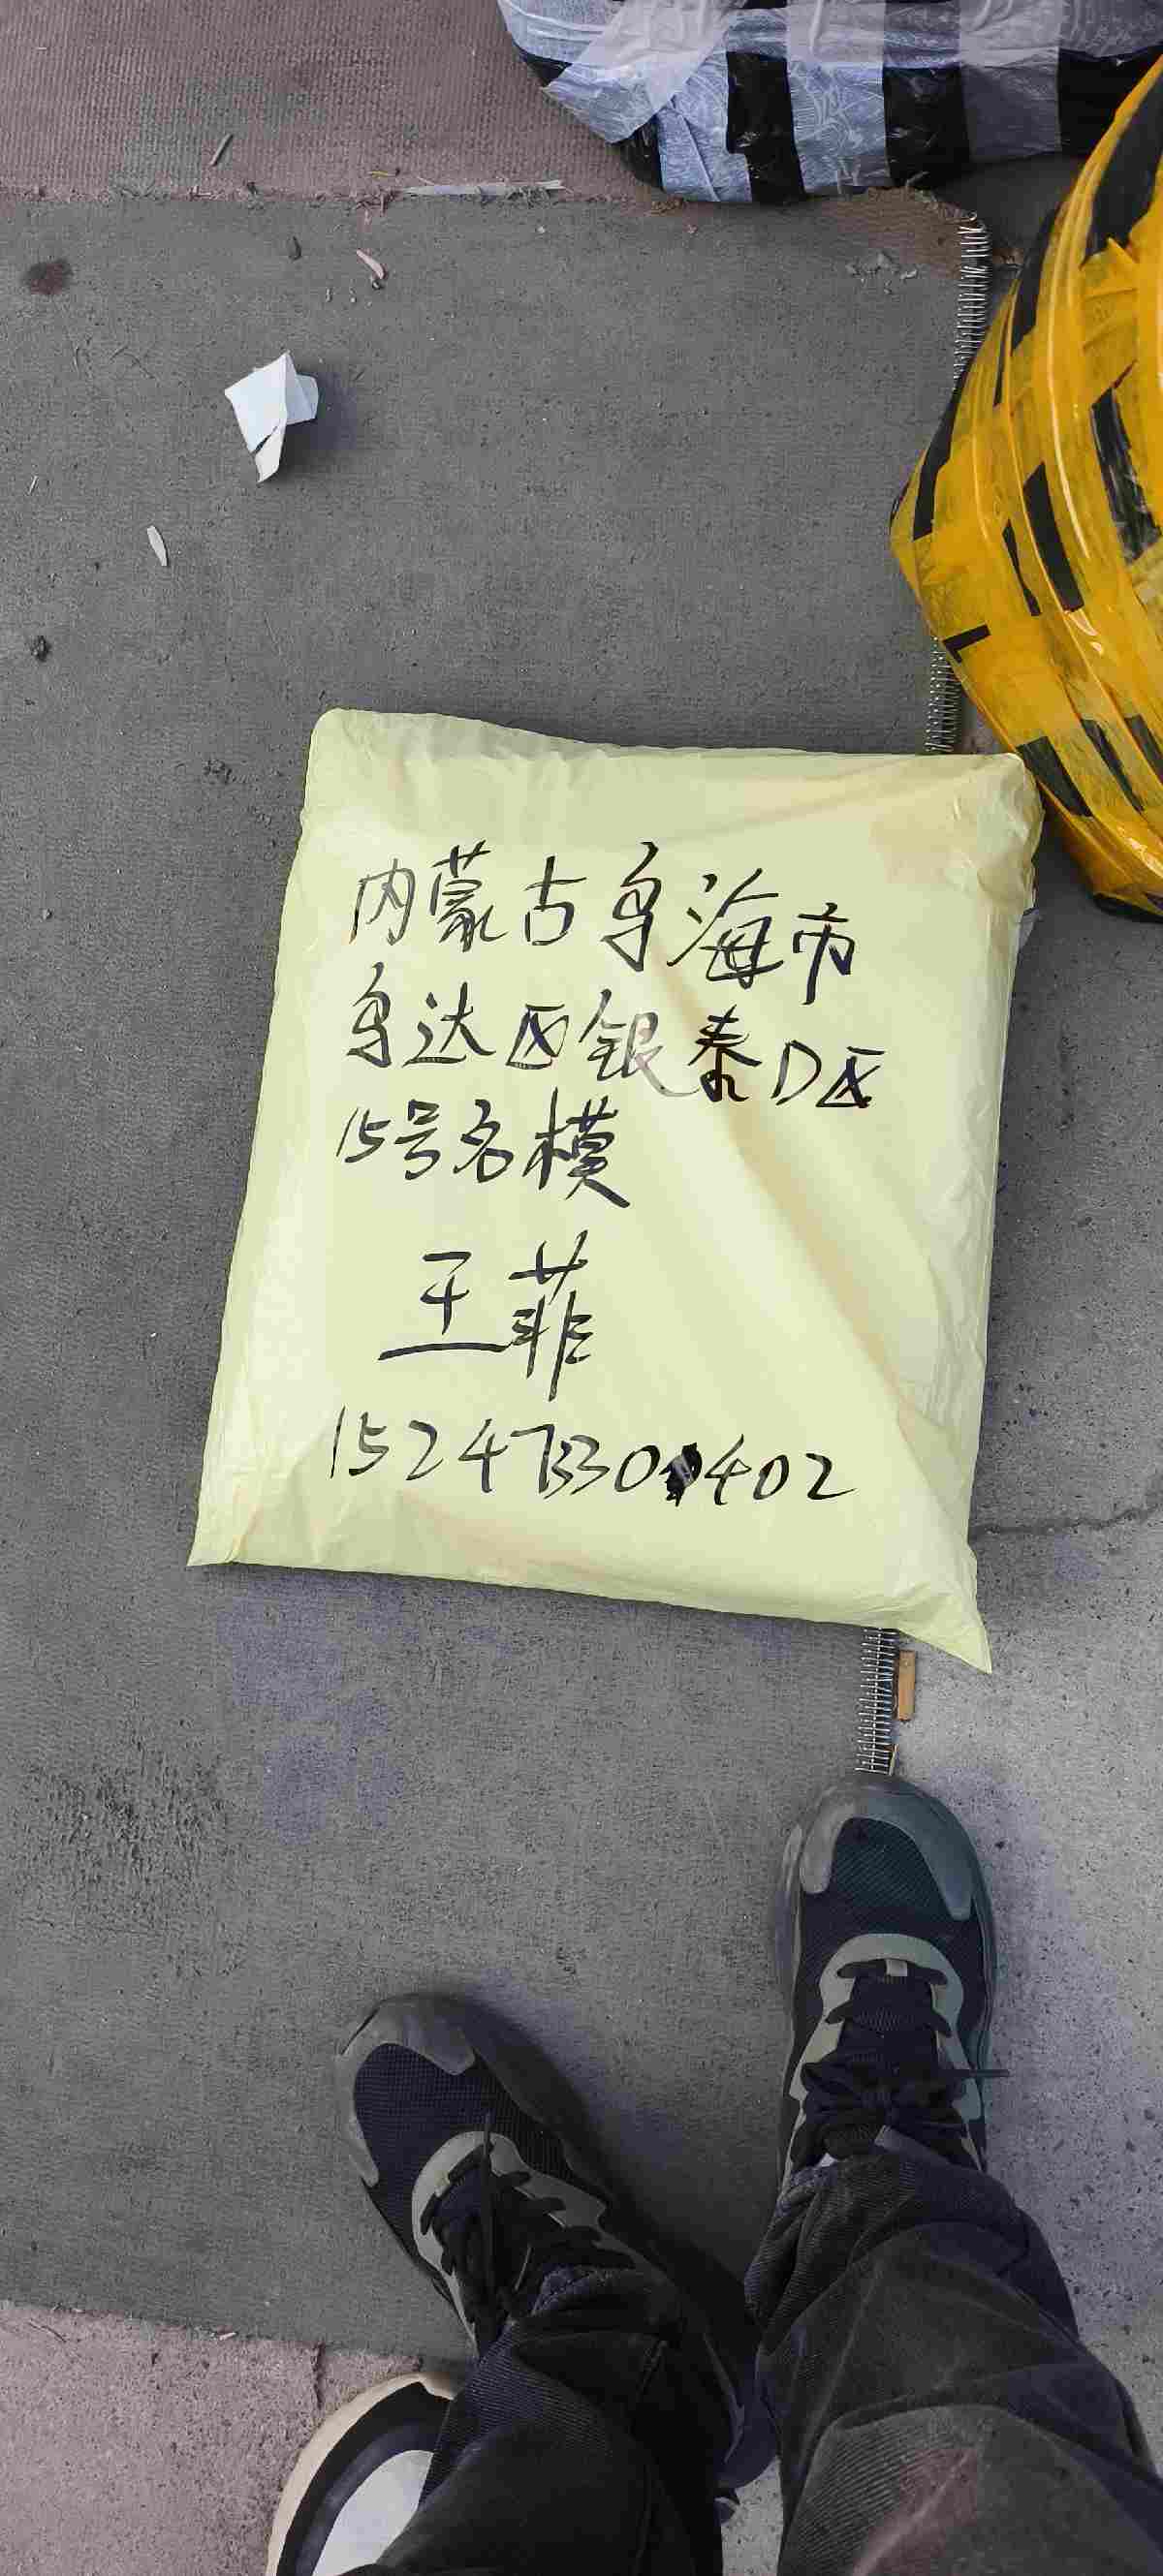 内蒙古乌海市
乌达区银泰D区
15号名模
王菲
15247330402